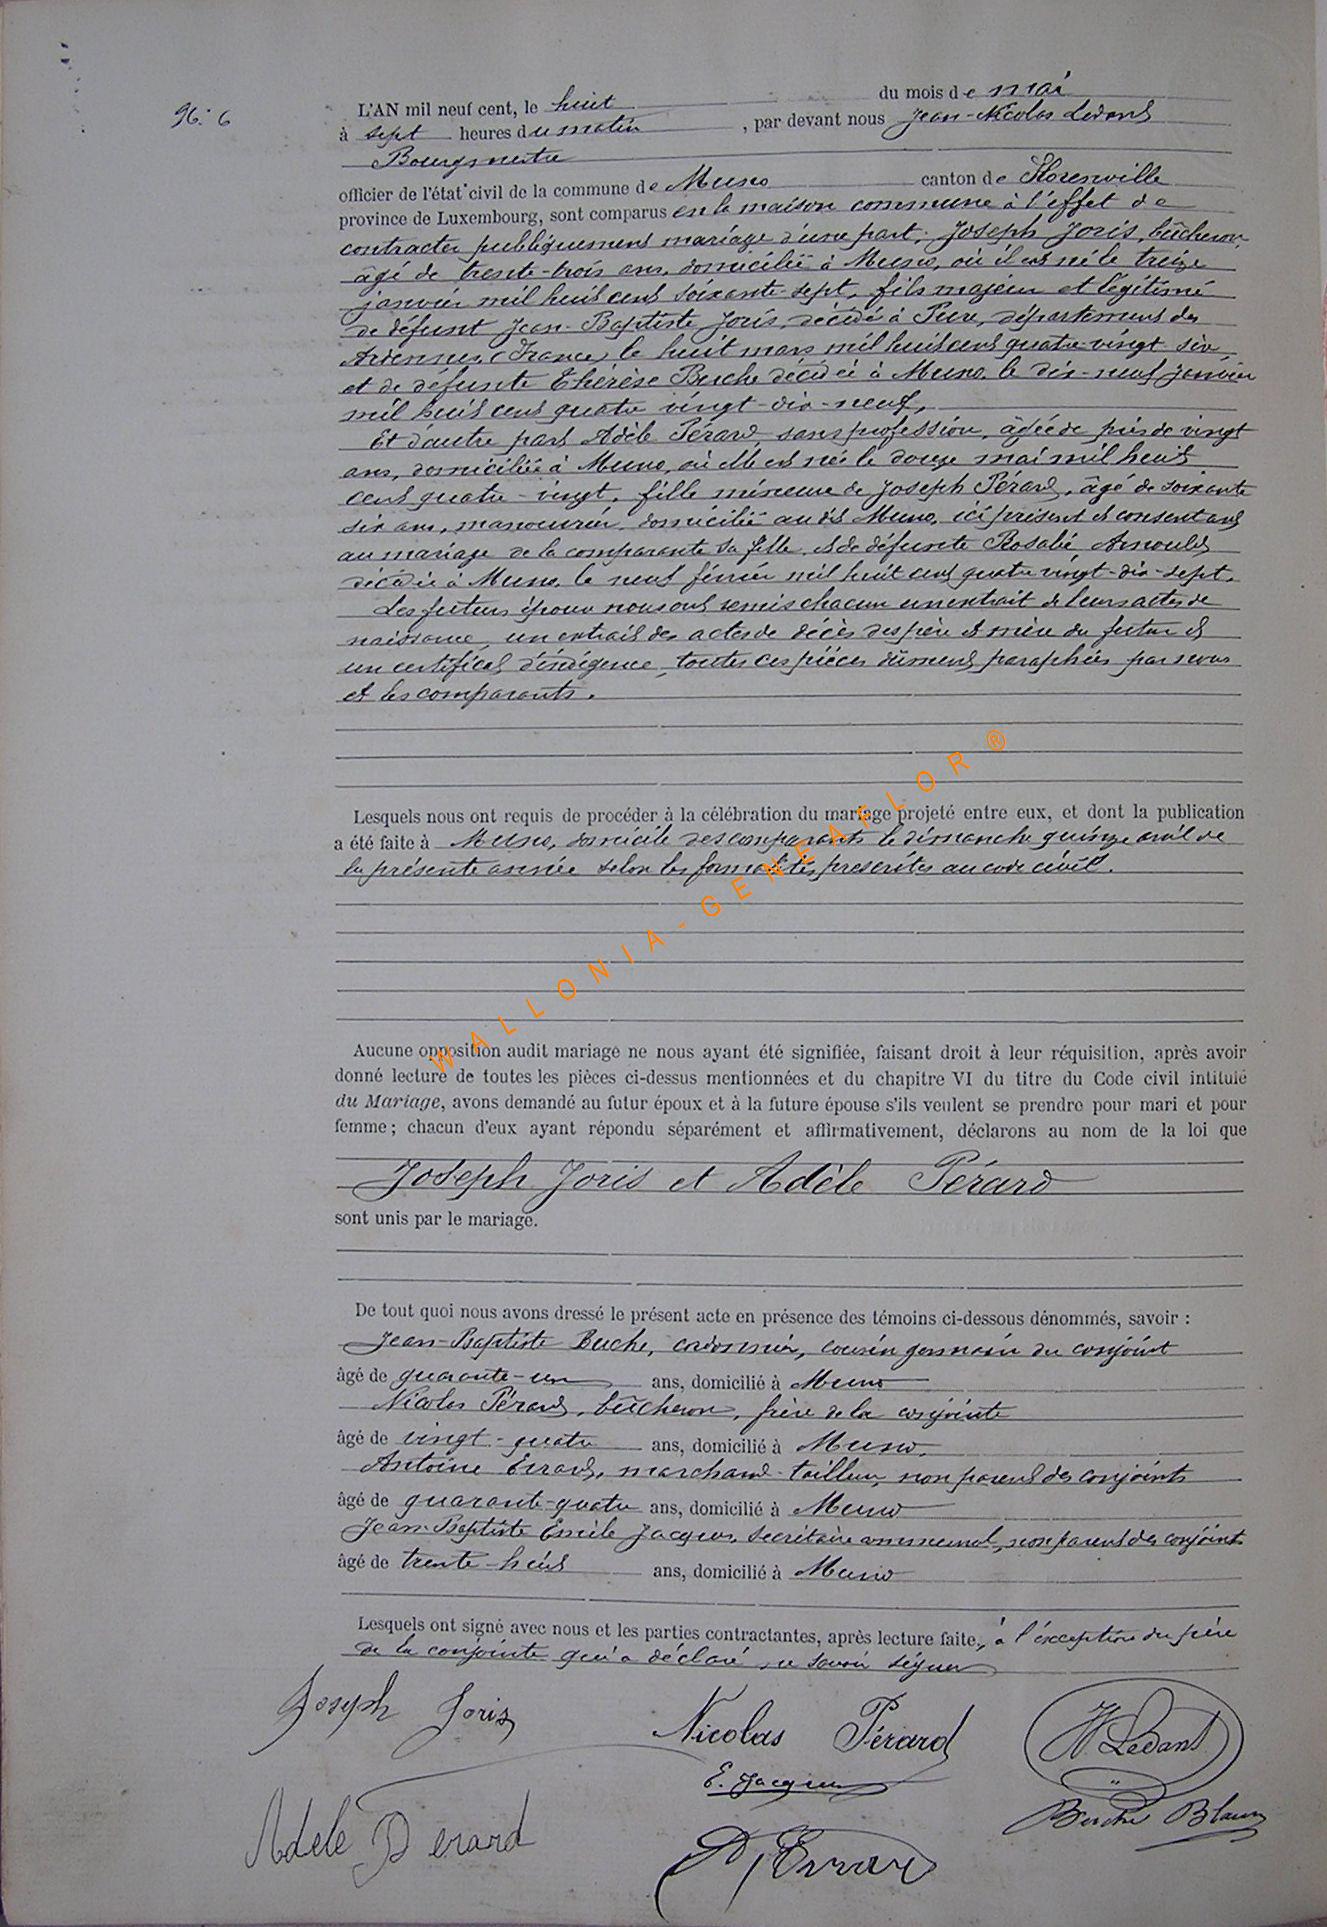 N° 6
L'AN mil neuf cent, le huit du mois de mai
à sept heures du matin, par devant nous Jean-Nicolas Ledant
Bourgmestre
officier de l'état civil de la commune de Muno canton de Florenville
province de Luxembourg, sont comparus en la maison commune à l'effet de
contracter publiquement mariage d'une part, Joseph Joris, bûcheron,
âgé de trente-trois ans, domicilié à Muno, où il est né le treize
janvier mil huit cent soixante-sept, fils majeur et légitime
de défunt Jean-Baptiste Joris, décédé à Pure, département des
Ardennes (France) le huit mars mil huit cent quatre-vingt six,
et de défunte Thérèse Buche décédée à Muno, le dix-neuf janvier
mil huit cent quatre vingt-dix-neuf,
Et d'autre part Adèle Pérard, sans profession, âgée de près de vingt
ans, domiciliée à Muno, où elle est née le douze mai mil huit
cent quatre-vingt, fille mineure de Joseph Pérard, âgé de soixante
six ans, manouvrier, domicilié au dit Muno, ici présent et consentant
au mariage de la comparante sa fille et de défunte Rosalie Arnould
décédée à Muno, le neuf février mil huit cent quatre vingt-dix-sept.
Les futurs époux nous ont remis chacun un extrait de leurs actes de
naissance, un extrait des actes de décès des père et mère du futur et
un certificat d'indigence, toutes ces pièces dûment paraphées par nous
et les comparants.
Lesquels nous ont requis de procéder à la célébration du mariage projeté entre eux, et dont la publication
a été faite à Muno, domicile des comparants le dimanche quinze avril de
la présente année selon les formalités prescrites au code civil.
WALLONIA-GENEAFLOR ®
Aucune opposition audit mariage ne nous ayant été signifiée, faisant droit à leur réquisition, après avoir
donné lecture de toutes les pièces ci-dessus mentionnées et du chapitre VI du titre du Code civil intitulé
du Mariage, avons demandé au futur époux et à la future épouse s'ils veulent se prendre pour mari et pour
femme; chacun d'eux ayant répondu séparément et affirmativement, déclarons au nom de la loi que
Joseph Joris et Adèle Pérard
sont unis par le mariage.
De tout quoi nous avons dressé le présent acte en présence des témoins ci-dessous dénommés, savoir :
Jean-Baptiste Buche, cordonnier, cousin germain du conjoint
âgé de quarante-un ans, domicilié à Muno
Nicolas Pérard, bûcheron, frère de la conjointe
âgé de vingt-quatre ans, domicilié à Muno.
Antoine Errard, marchand-tailleur, non parent des conjoints
âgé de quarante-quatre ans, domicilié à Muno
Jean-Baptiste Emile Jacques, secrétaire communal, non parent des conjoints
âgé de trente-huit ans, domicilié à Muno
Lesquels ont signé avec nous et les parties contractantes, après lecture faite, à l'exception du père
de la conjointe qui a déclaré ne savoir signer
Joseph Joris Nicolas Pérard Ledant
E. Jacques
Adele Perard Errard Buche